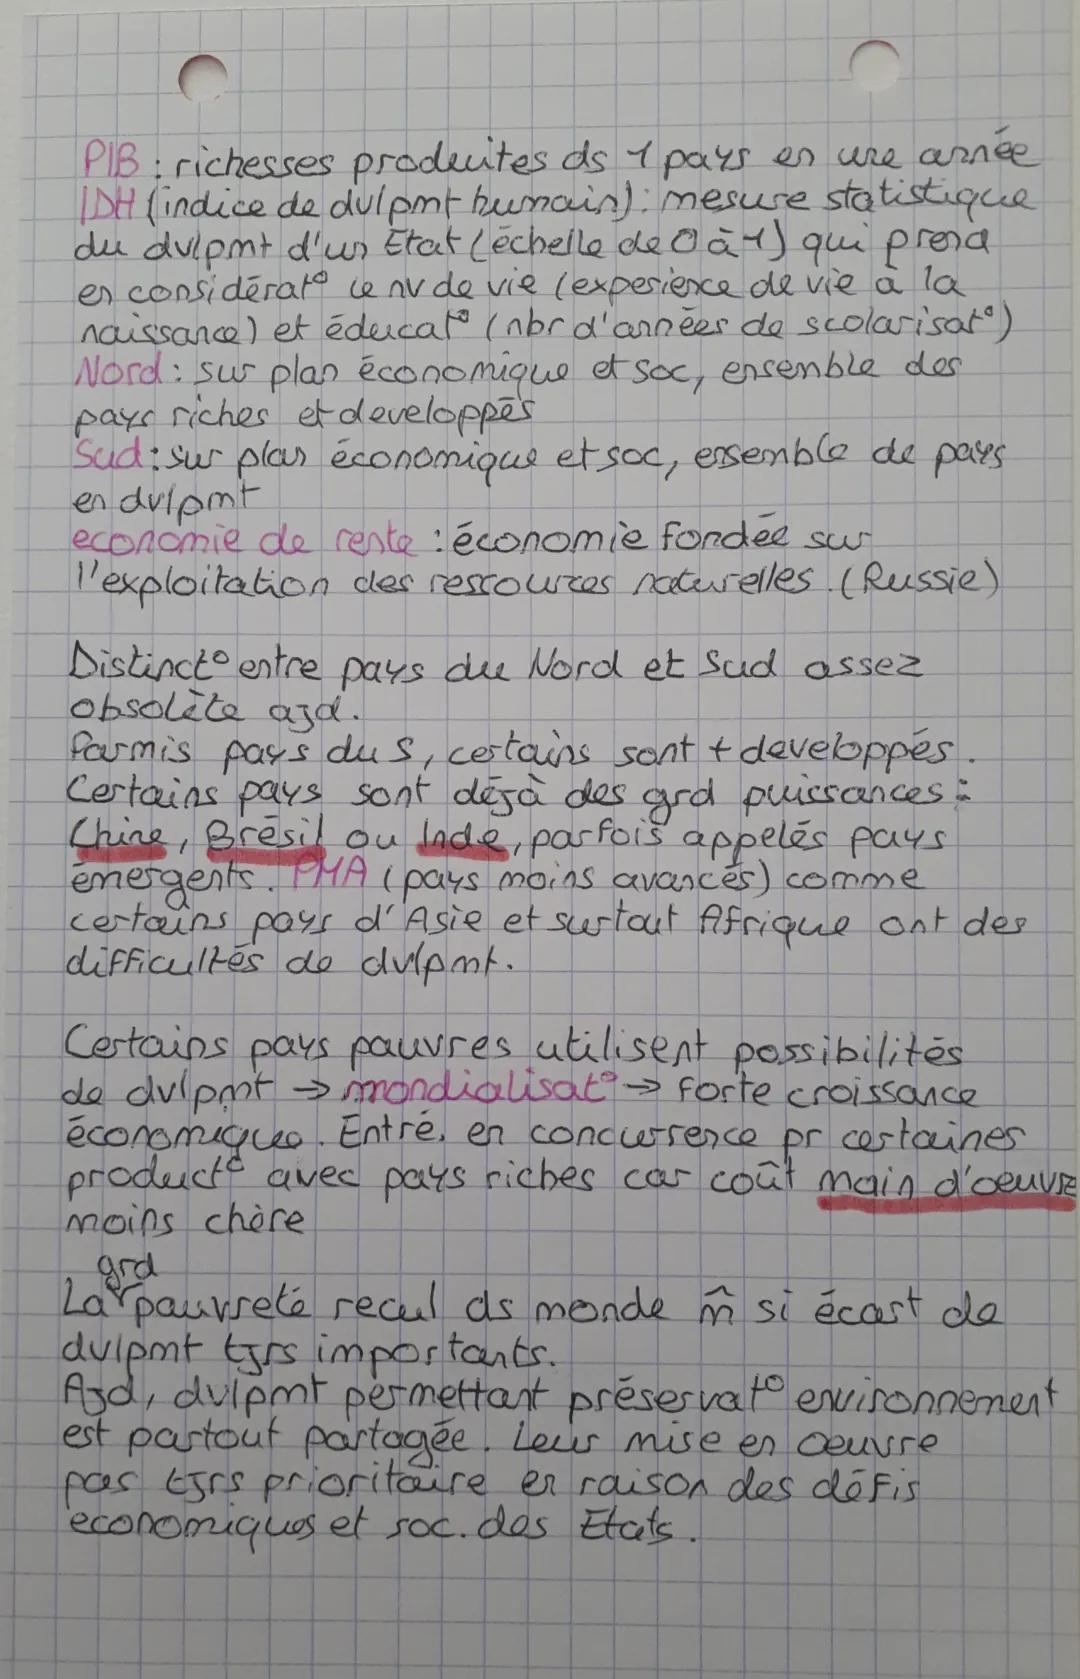 PIB : richesses produites ds 1 pays en une année
IDH (indice de dvlpmt humain) : mesure statistique
du dvlpmt d'un État (échelle de 0 à 1) qui prend
en considérat° le nv de vie (experience de vie à la
naissance) et éducat° (nbr d'années de scolarisat°)
Nord : sur plan économique et soc, ensemble des
pays riches et developpés
Sud : sur plan économique et soc, ensemble de pays
en dvlpmt
economie de rente : économie fondée sur
l'exploitation des ressources naturelles. (Russie)
Distinct° entre pays du Nord et Sud assez
obsolète ajd.
Parmis pays du S, certains sont + developpés.
Certains pays sont déjà des grd puissances :
Chine, Brésil ou Inde, parfois appelés pays
émergents. PMA (pays moins avancés) comme
certains pays d'Asie et surtout Afrique ont des
difficultés de dvlpmt.
Certains pays pauvres utilisent possibilités
de dvlpmt → mondialisat° → forte croissance
économique. Entré, en concurrence pr certaines
product° avec pays riches car coût main d'oeuvre
moins chère
La grd pauvreté recul ds monde m̂ si écart de
dvlpmt tjrs importants.
Ajd, dvlpmt permettant préservat° environnement
est partout partagée. Leur mise en oeuvre
pas tjrs prioritaire en raison des défis
economiques et soc. des Etats.